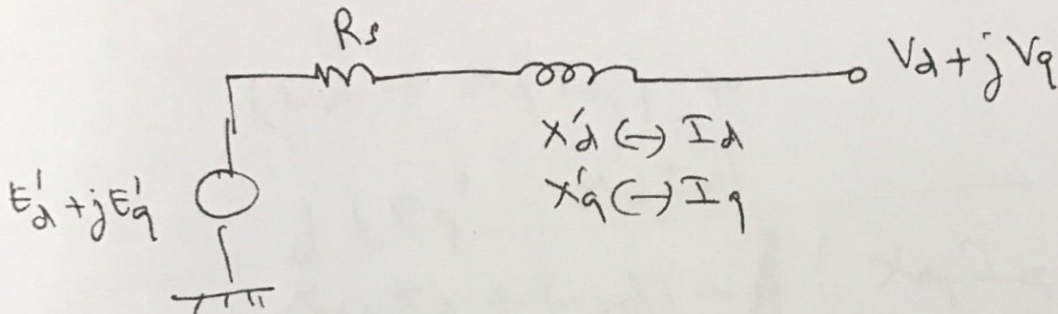 Rs
Vd + j Vq
X'd ↔ Id
X'q ↔ Iq
E'd + jE'q